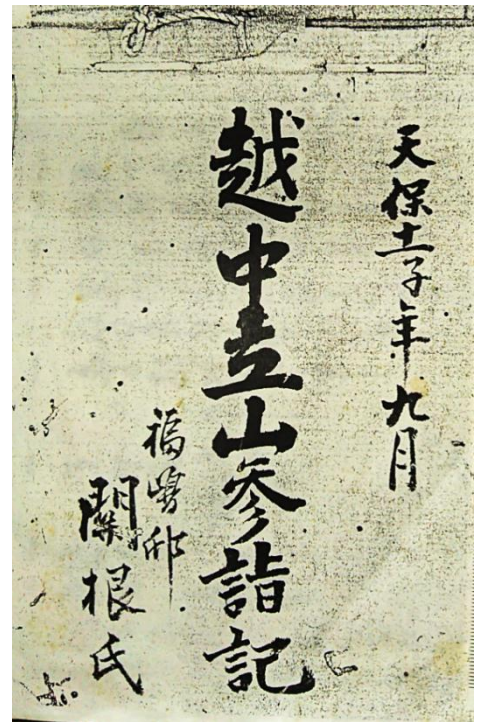 天保十一子年九月
越中立山参詣記
關根氏